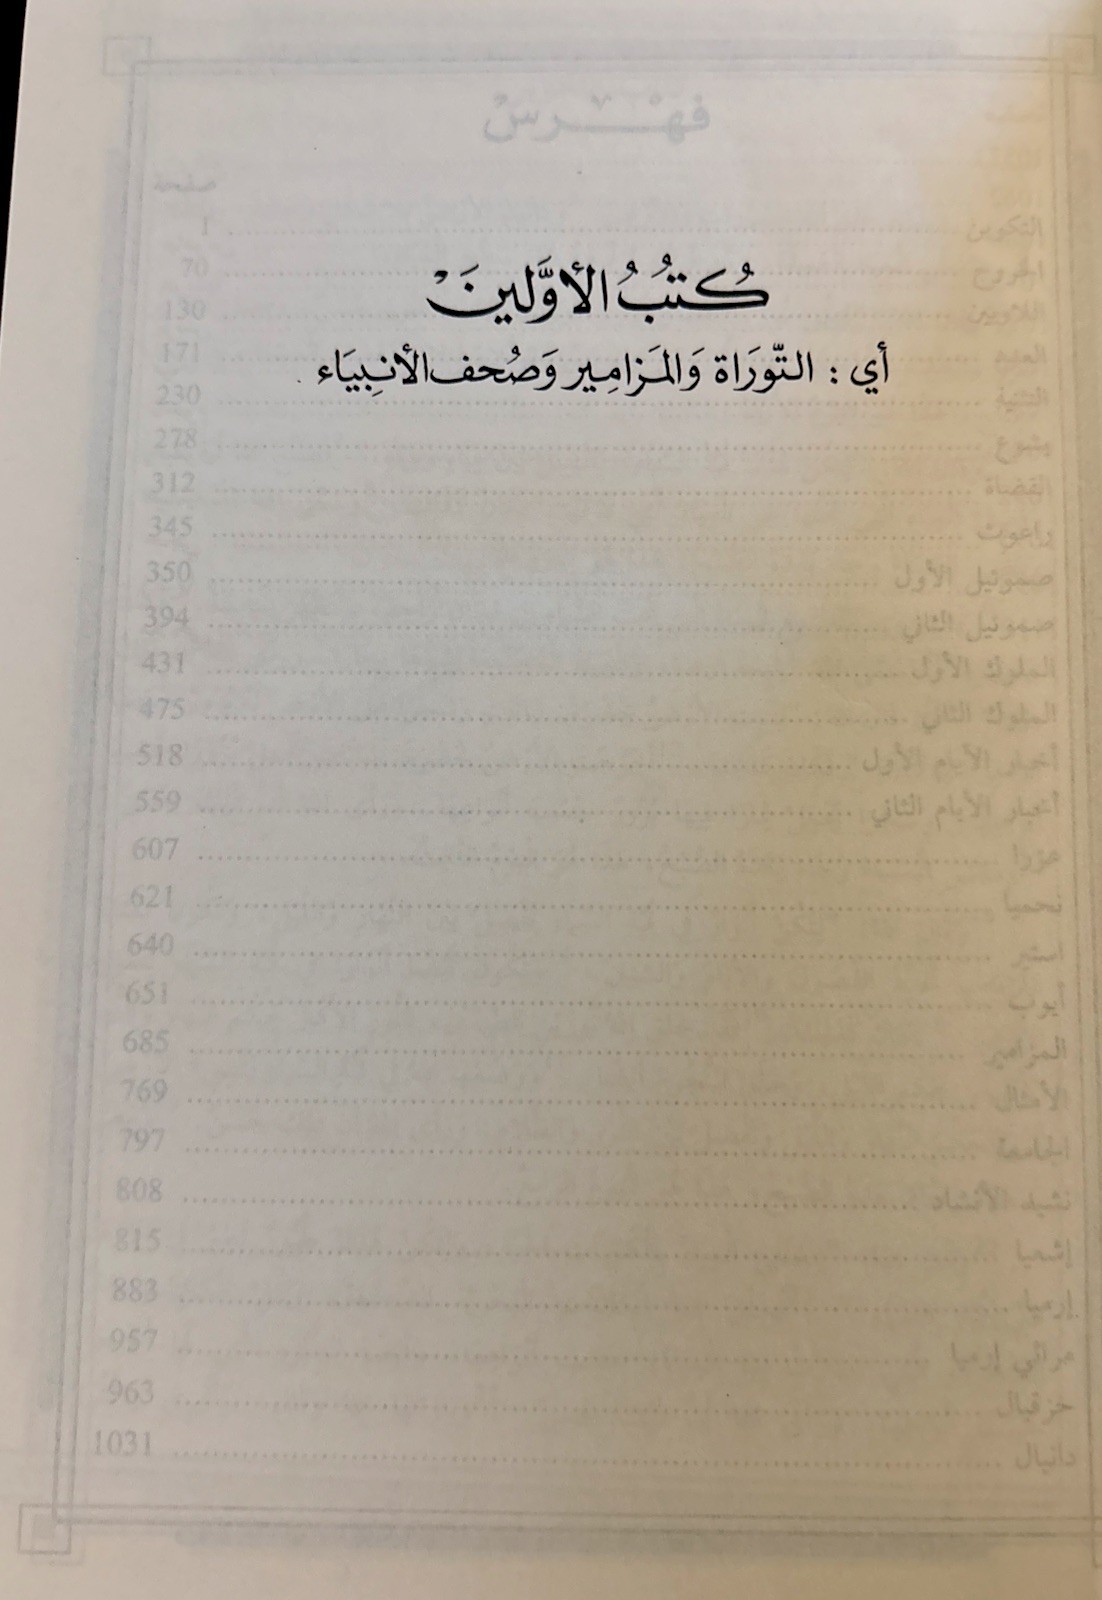 كُتُبُ الأوَّلينَ
أي : التّورَاة وَالمَزامِير وَصُحف الأنبِيَاء .
فهْرس
صفحة
التكوين ........ 1
الخروج ........ 70
اللاويين ........ 130
العدد ........ 171
التثنية ........ 230
يشوع ........ 278
القضاة ........ 312
راعوث ........ 345
صموئيل الأول ........ 350
صموئيل الثاني ........ 394
الملوك الأول ........ 431
الملوك الثاني ........ 475
أخبار الأيام الأول ........ 518
أخبار الأيام الثاني ........ 559
عزرا ........ 607
نحميا ........ 621
استير ........ 640
أيوب ........ 651
المزامير ........ 685
الأمثال ........ 769
الجامعة ........ 797
نشيد الأنشاد ........ 808
إشعيا ........ 815
إرميا ........ 883
مراثي إرميا ........ 957
حزقيال ........ 963
دانيال ........ 1031